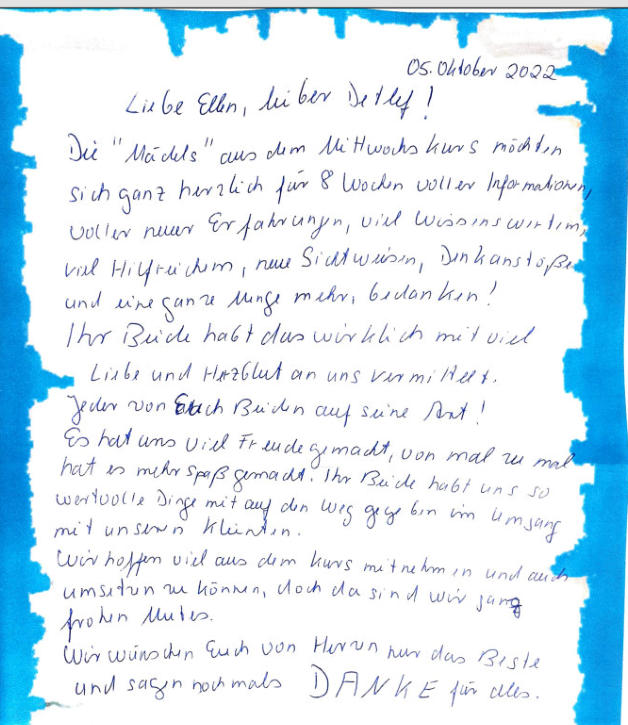 05. Oktober 2022
Liebe Ellen, lieber Detlef!
Die "Mädels" aus dem Mittwochskurs möchten
sich ganz herzlich für 8 Wochen voller Informationen,
voller neuer Erfahrungen, viel Wissenswertem,
viel Hilfreichem, neue Sichtweisen, Denkanstöße
und eine ganze Menge mehr, bedanken!
Ihr Beide habt das wirklich mit viel
Liebe und Herzblut an uns vermittelt.
Jeder von Euch Beiden auf seine Art!
Es hat uns viel Freude gemacht, von mal zu mal
hat es mehr Spaß gemacht. Ihr Beide habt uns so
wertvolle Dinge mit auf den Weg gegeben im Umgang
mit unseren Klienten.
Wir hoffen viel aus dem Kurs mitnehmen und auch
umsetzen zu können, doch da sind wir ganz
frohen Mutes.
Wir wünschen Euch von Herzen nur das Beste
und sagen nochmals DANKE für alles.